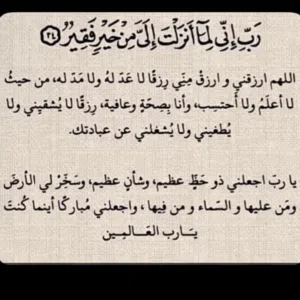 رَبِّ إِنِّي لِمَا أَنزَلْتَ إِلَيَّ مِنْ خَيْرٍ فَقِيرٌ ﴿٢٤﴾
اللهم ارزقني و ارزقْ مِنّي رِزقًا لا عَدّ لهُ ولا مَدّ له، من حيثُ
لا أعلَمُ ولا أحتسِب، وأنا بصِحّةٍ وعافية، رِزقًا لا يُشقيِني ولا
يُطغيني ولا يُشغلني عن عبادتك.
يا ربّ اجعلني ذو حَظٍّ عظيم، وشأنٍ عظيم، وسَخِّرْ لي الأرضَ
ومَن عليها و السّماء و من فِيها ، واجعلني مُباركًا أينما كُنتَ
يــارب العَـالَمِـيـن